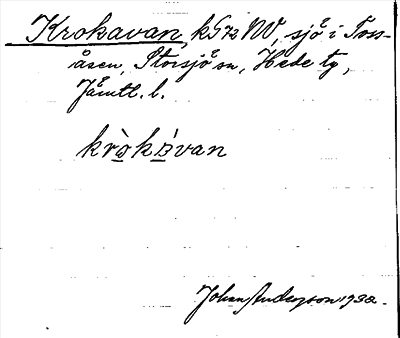 Krokavan, k57b NV, sjö i Toss-
åsen, Storsjö sn, Hede tg,
Jämtl. l.
kròkȧvan
Johan Anderson 1932.